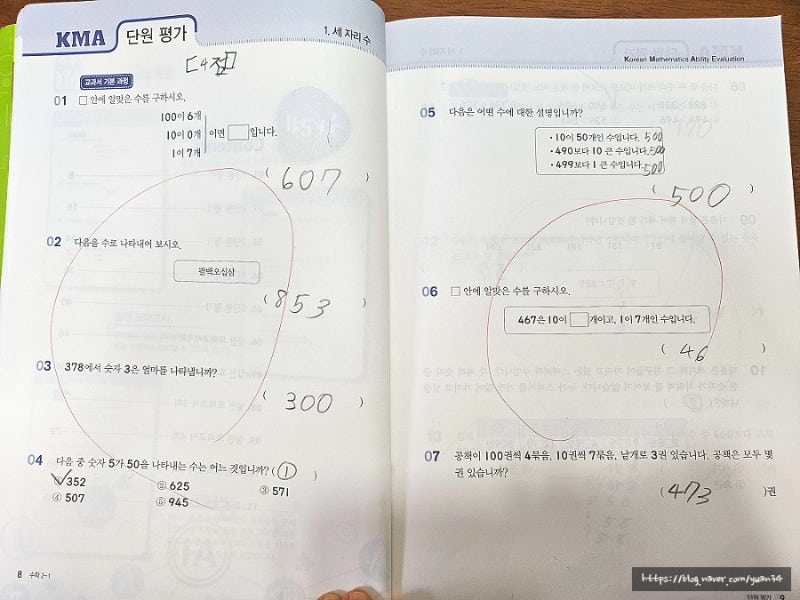 KMA 단원 평가
1. 세 자리 수
[4점]
교과서 기본 과정
01 □ 안에 알맞은 수를 구하시오.
100이 6개
10이 0개 이면 □입니다.
1이 7개
( 607 )
02 다음을 수로 나타내어 보시오.
팔백오십삼
( 853 )
03 378에서 숫자 3은 얼마를 나타냅니까?
( 300 )
04 다음 중 숫자 5가 50을 나타내는 수는 어느 것입니까? ( ① )
① 352 ② 625 ③ 571
④ 507 ⑤ 945
8 수학 2-1
Korean Mathematics Ability Evaluation
05 다음은 어떤 수에 대한 설명입니까?
• 10이 50개인 수입니다. 500
• 490보다 10 큰 수입니다. 500
• 499보다 1 큰 수입니다. 500
( 500 )
06 □ 안에 알맞은 수를 구하시오.
467은 10이 □개이고, 1이 7개인 수입니다.
( 46 )
07 공책이 100권씩 4묶음, 10권씩 7묶음, 낱개로 3권 있습니다. 공책은 모두 몇
권 있습니까?
( 473 )권
https://blog.naver.com/yuan34
단원 평가 9